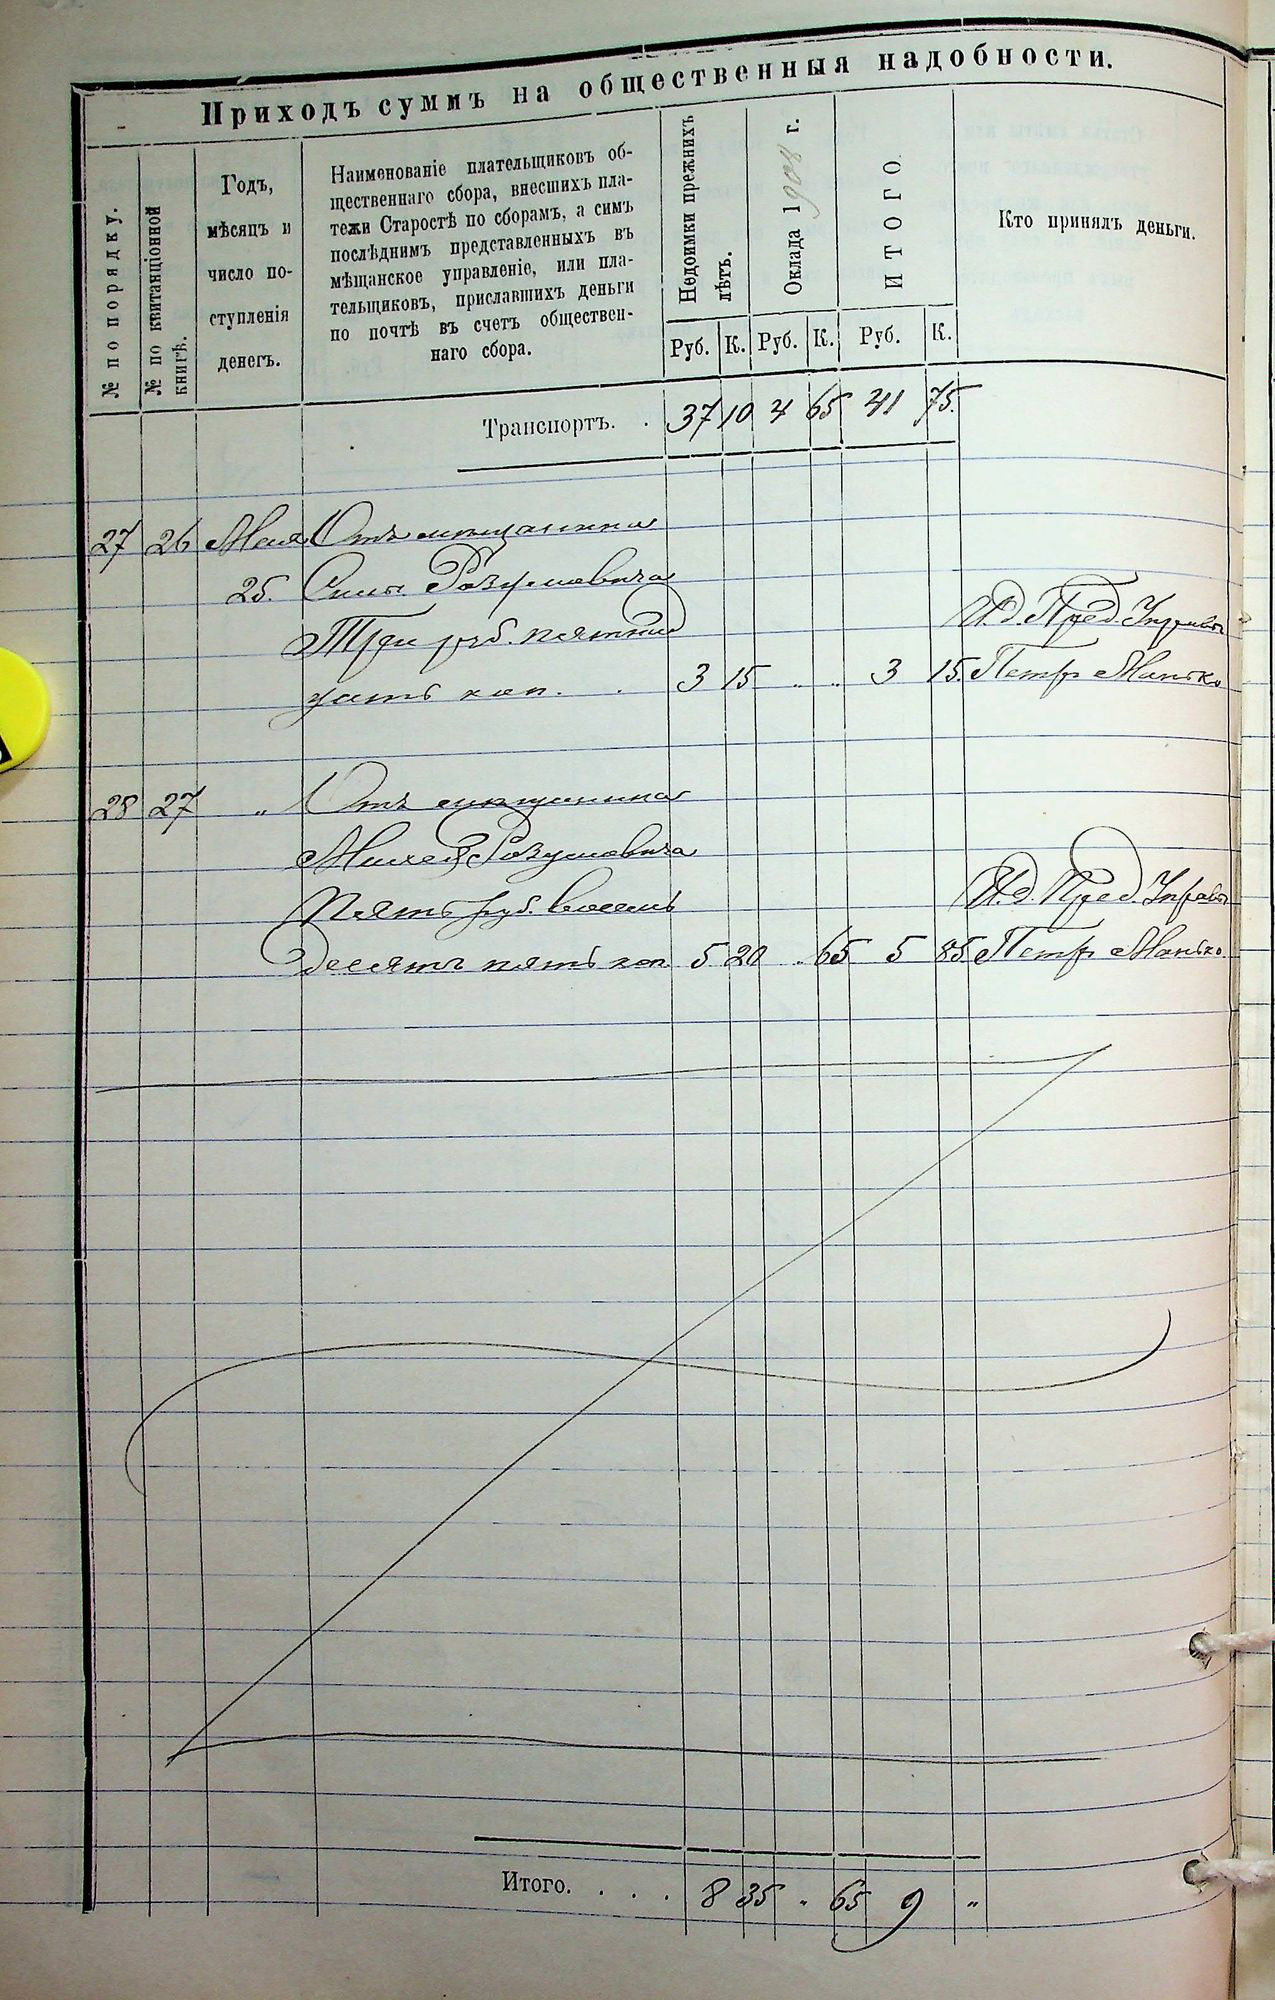 Приходъ суммъ на общественныя надобности.
№ по порядку.
№ по квитанціонной
книгѣ.
Годъ,
мѣсяцъ и
число по-
ступленія
денегъ.
Наименованіе плательщиковъ об-
щественнаго сбора, внесшихъ пла-
тежи Старостѣ по сборамъ, а симъ
послѣднимъ представленныхъ въ
мѣщанское управленіе, или пла-
тельщиковъ, приславшихъ деньги
по почтѣ въ счетъ обществен-
наго сбора.
Недоимки прежнихъ
лѣтъ.
Оклада 1908 г.
ИТОГО.
Кто принялъ деньги.
Руб. К. Руб. К. Руб. К.
Транспортъ. . 37 10 4 65 41 75.
27 26 Мая Отъ мѣщанина
25. Силы Розумовича
Три руб. пятнад
И.д. Пред. Управы
цать коп. . 3 15 „ „ 3 15. Петръ Манько
28 27 „ Отъ мѣщанина
Михея Розумовича
Пять руб. восемь
И.д. Пред. Управы
десятъ пять коп 5 20 „ 65 5 85 Петръ Манько
Итого. . . . 8 35 „ 65 9 „